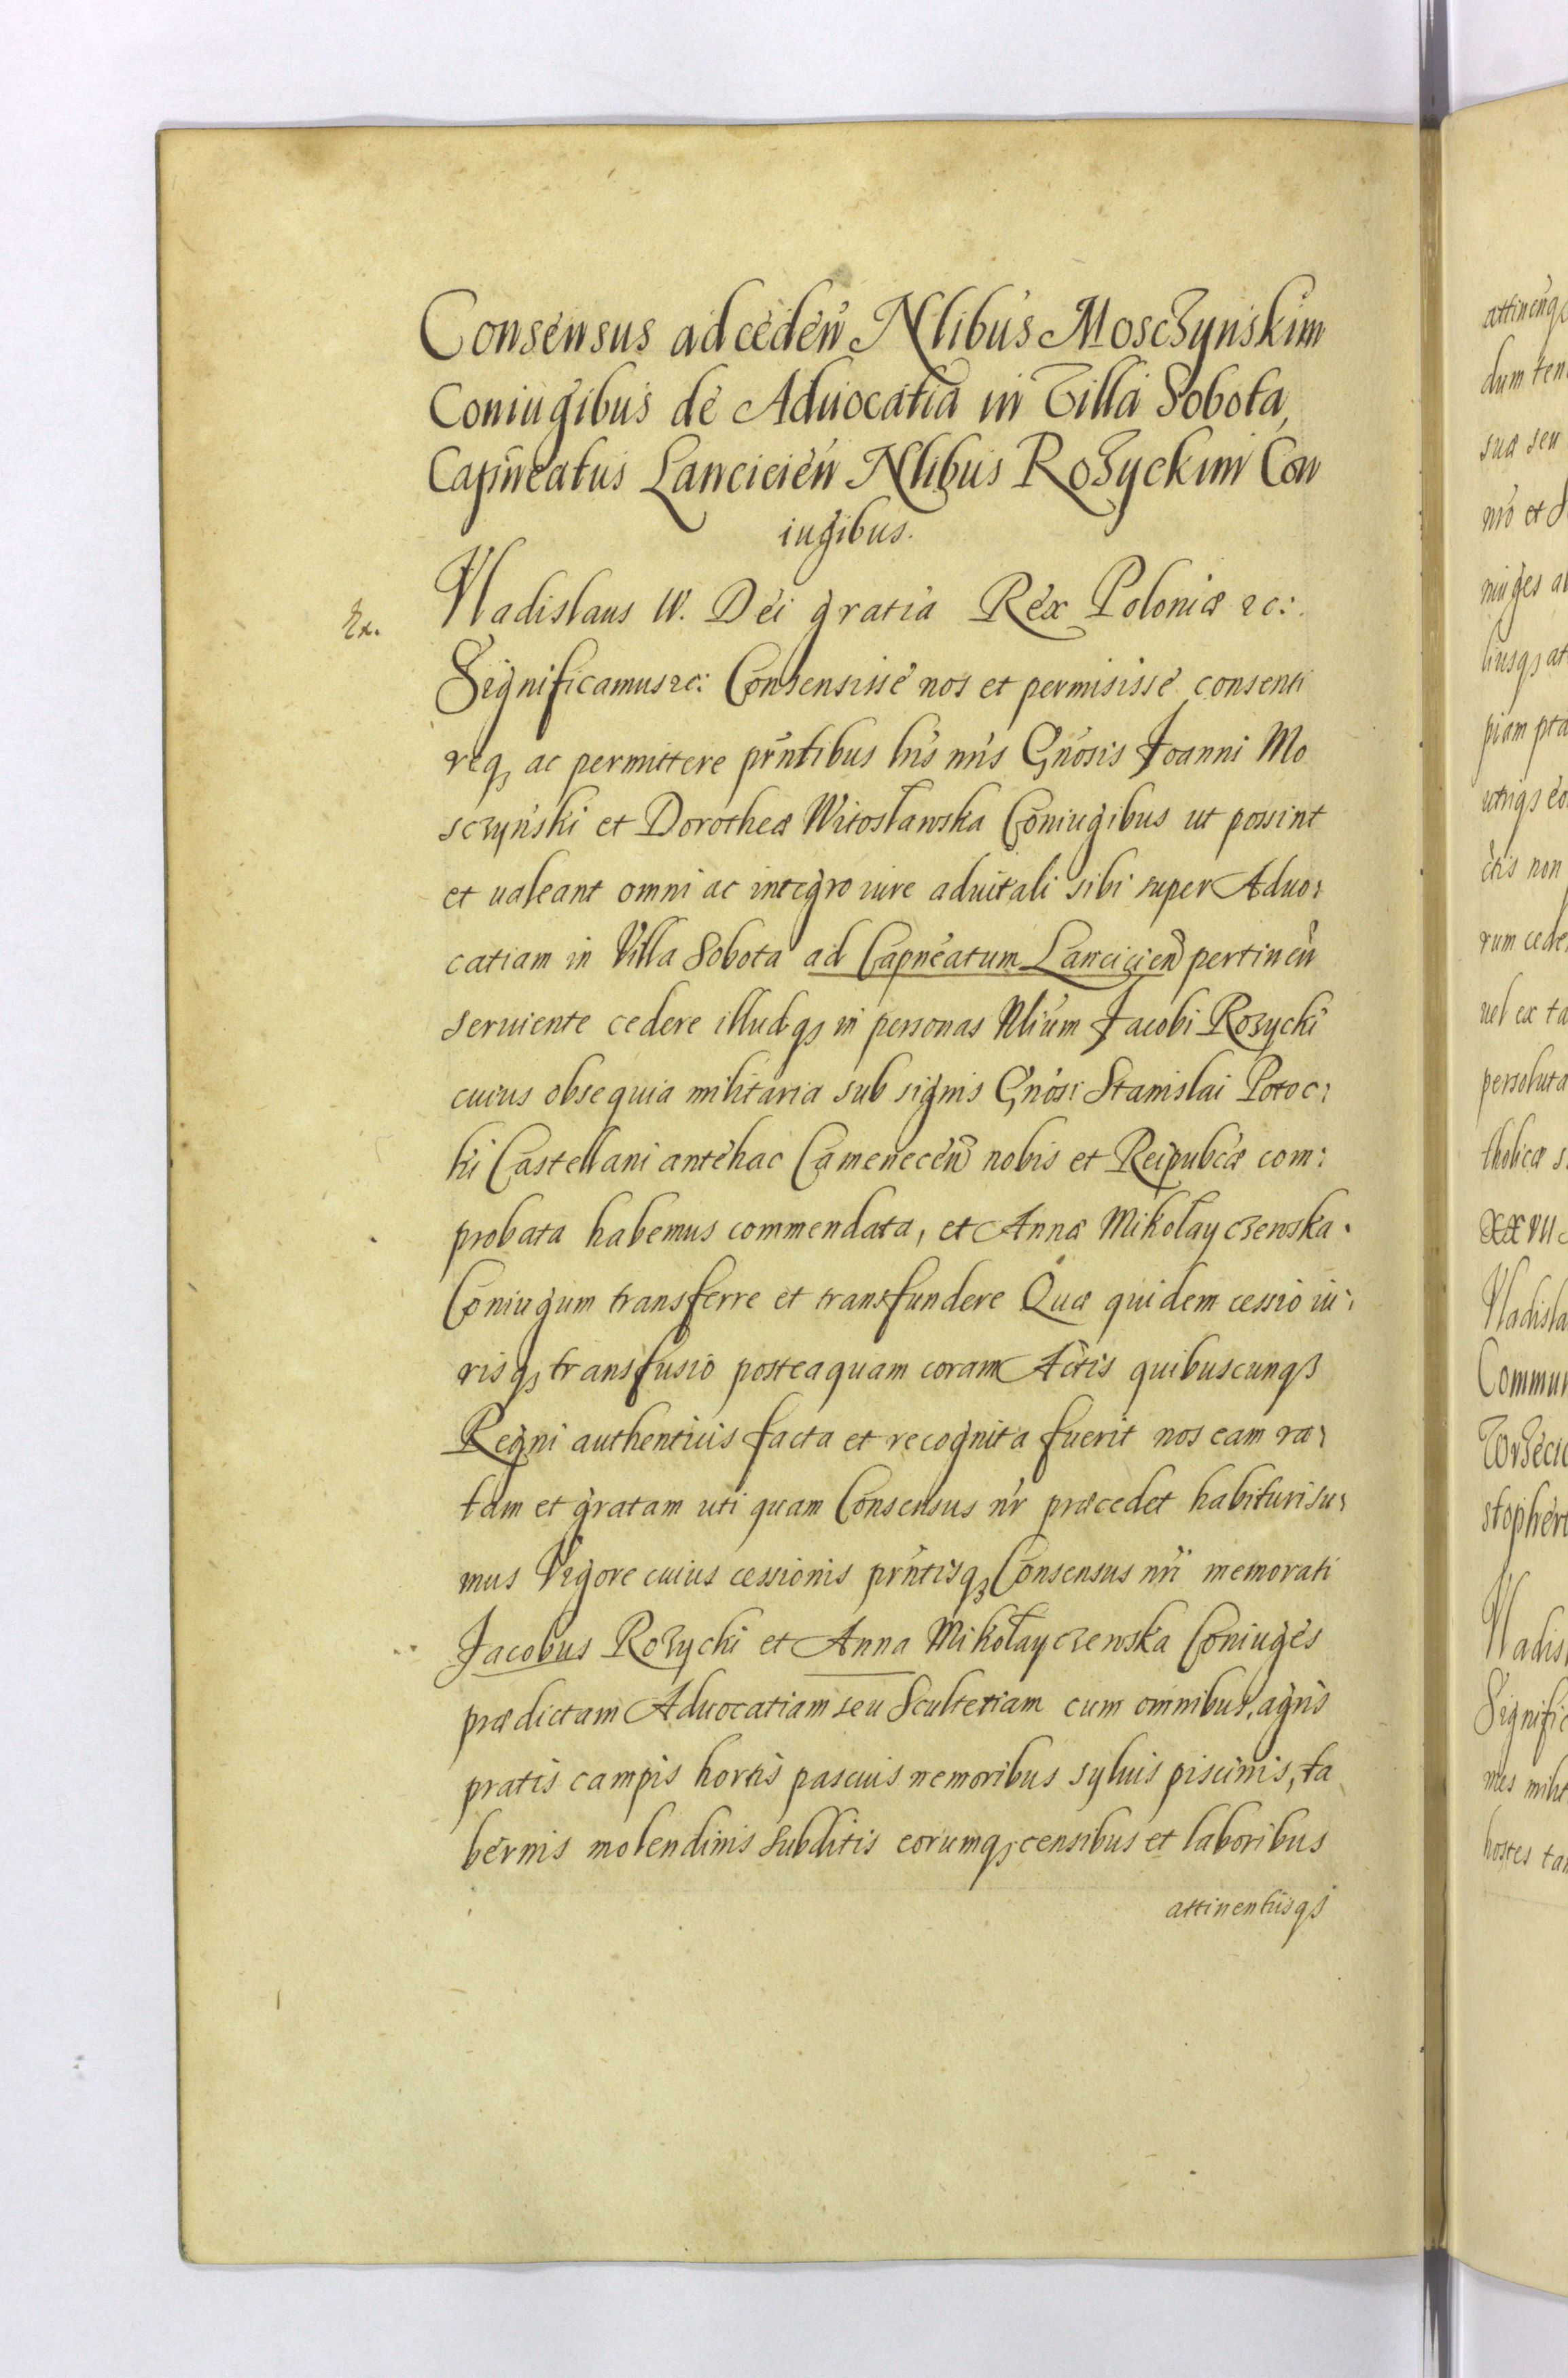 Consensus ad ceden̄ Nlibus Moschynskim
Coniugibus de Aduocatia in Villa Sobota,
Capn̄eatus Lancicien̄ Nlibus Rozyckim Con
iugibus.
Ex.
Vladislaus IV. Dei gratia Rex Poloniæ &c:.
Significamus &c: Consensisse nos et permisisse consenti
req₃ ac permittere pr̄ntibus lr̄is nr̄is Gn̄osis Joanni Mo
sczyński et Dorotheæ Witosławska Coniugibus ut possint
et ualeant omni ac integro iure aduitali sibi super Aduo:
catiam in Villa Sobota ad Capn̄eatum Lancicien̄ pertinen̄
seruiente cedere illudq₃ in personas Nlium Jacobi Rozycki
cuius obsequia militaria sub signis Gn̄osi Stanislai Potoc:
ki Castellani antehac Camenecen̄ nobis et Reipubcæ com:
probata habemus commendata, et Annæ Mikołayczewska.
Coniugum transferre et transfundere Quæ quidem cessio iu:
risq₃ transfusio posteaquam coram Actis quibuscunq₃
Regni authenticis facta et recognita fuerit nos eam ra:
tam et gratam uti quam Consensus nr̄ præcedet habituri su:
mus Vigore cuius cessionis pr̄ntisq₃ Consensus nr̄i memorati
Jacobus Rozycki et Anna Mikołayczewska Coniuges
prædictam Aduocatiam seu Scultetiam cum omnibus, agris
pratis campis hortis pascuis nemoribus syluis piscinis, ta
bernis molendinis subditis eorumq₃ censibus et laboribus
attinentiisq₃